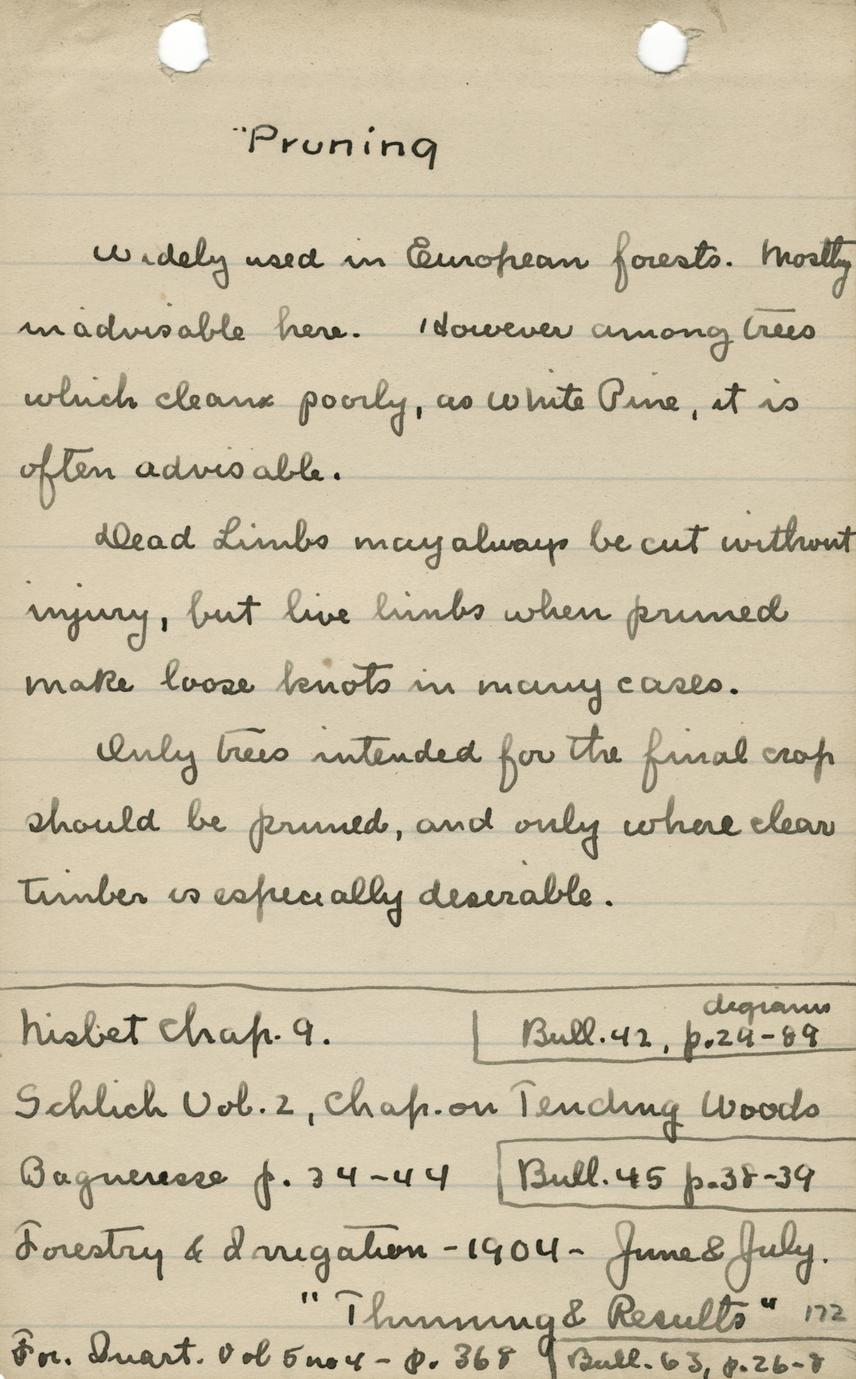 "Pruning
Widely used in European forests. Mostly
inadvisable here. However among trees
which clean poorly, as White Pine, it is
often advisable.
Dead Limbs may always be cut without
injury, but live limbs when pruned
make loose knots in many cases.
Only trees intended for the final crop
should be pruned, and only where clear
timber is especially deserable.
degrams
Nisbet Chap. 9. Bull. 42, p. 29-89
Schlich Vol. 2, Chap. on Tending Woods
Bagneresse p. 34-44 Bull. 45 p. 38-39
Forestry & Irrigation - 1904 - June & July.
"Thinning & Results" 172
For. Quart. Vol 5 no 4 - p. 368 Bull. 63, p. 26-8